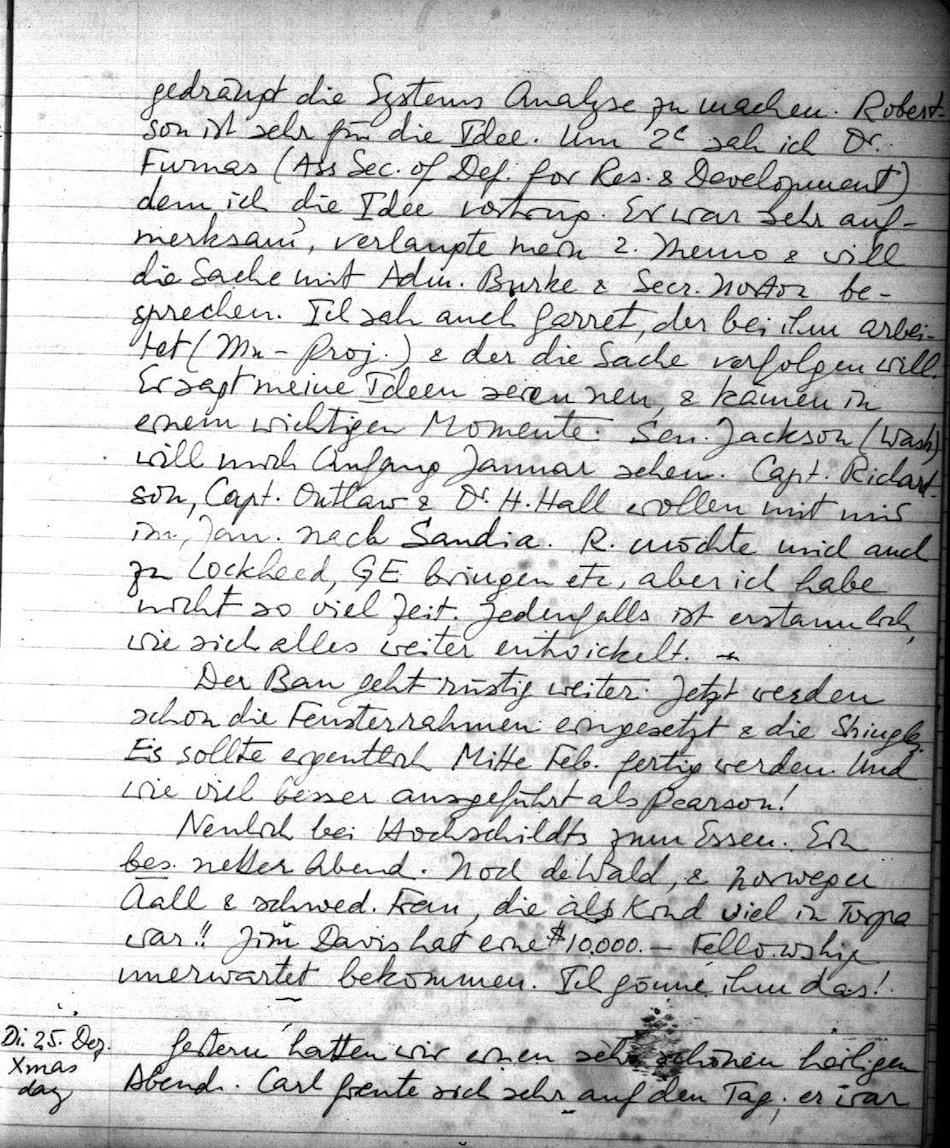 gedrängt die Systems Analyse zu machen. Robert-
son ist sehr für die Idee. Um 2ᶜ sah ich Dr.
Furnas (Ass Sec. of Def. for Res. & Development)
dem ich die Idee vortrug. Er war sehr auf-
merksam, verlangte mein 2. Memo & will
die Sache mit Adm. Burke & Secr. Norton be-
sprechen. Ich sah auch Garret, der bei ihm arbei-
tet (Mn-Proj.) & der die Sache verfolgen will.
Er sagt meine Ideen seien neu, & kämen in
einem wichtigen Momente. Sen. Jackson (Wash)
will mich Anfang Januar sehen. Capt. Richard-
son, Capt. Outlaw & Dr. H. Hall wollen mit mir
im Jan. nach Sandia. R. möchte mich auch
zu Lockheed, GE bringen etc, aber ich habe
nicht so viel Zeit. Jedenfalls ist erstaunlich,
wie sich alles weiter entwickelt. –
Der Bau geht rüstig weiter. Jetzt werden
schon die Fensterrahmen eingesetzt & die Shingls.
Es sollte eigentlich Mitte Feb. fertig werden. Und
wie viel besser ausgeführt als Pearson!
Neulich bei Hochschildts zum Essen. Ein
bes. netter Abend. Noch deWald, & norweger
Aall & schwed. Frau, die als Kind viel in
war!! Jim Davis hat eine $10,000.– Fellowship
unerwartet bekommen. Ich gönne ihm das!
Di. 25. Dez.
Xmas
day
Gestern hatten wir einen sehr schönen heiligen
Abend. Carl freute sich sehr auf den Tag; er war